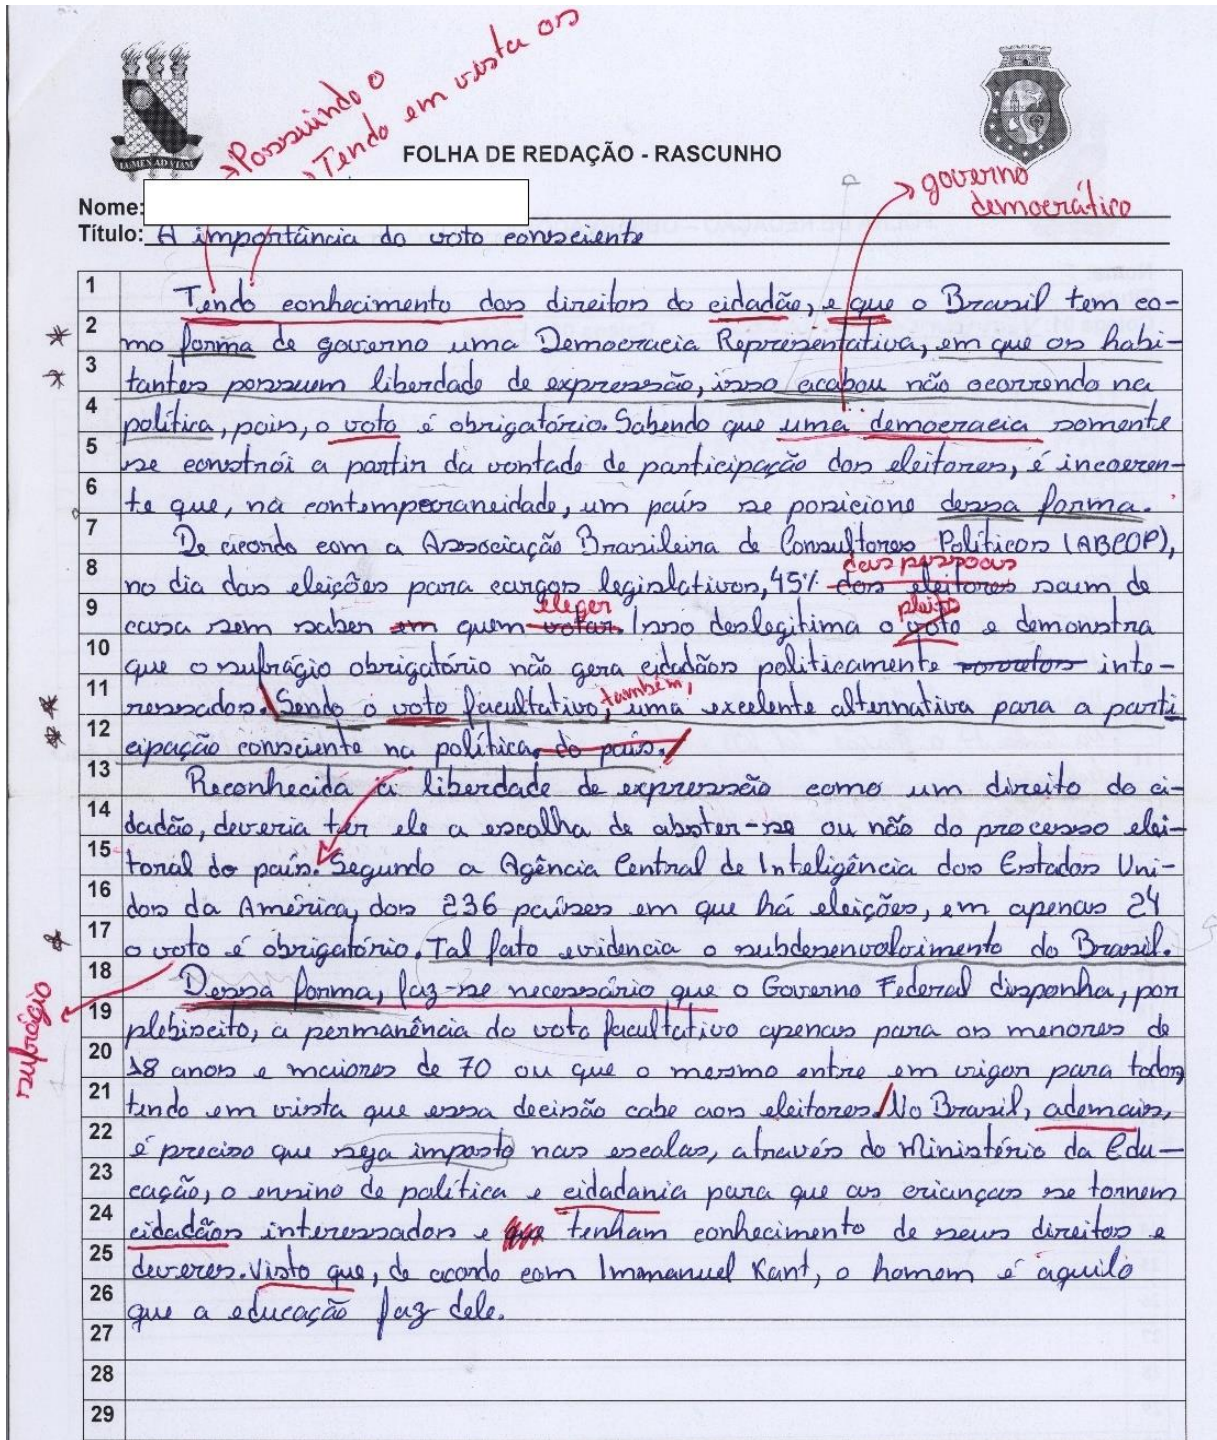 →Possuindo o
→Tendo em vista os
LUMEN AD VIAM
FOLHA DE REDAÇÃO - RASCUNHO
→ governo
democrático
Nome:
Título: A importância do voto consciente
1 Tendo conhecimento dos direitos do cidadão, e que o Brasil tem co-
* 2 mo forma de governo uma Democracia Representativa, em que os habi-
* 3 tantes possuem liberdade de expressão, isso acabou não ocorrendo na
4 política, pois, o voto é obrigatório. Sabendo que uma democracia somente
5 se constrói a partir da vontade de participação dos eleitores, é incoeren-
6 te que, na contemporaneidade, um país se posicione dessa forma.
7 De acordo com a Associação Brasileira de Consultores Políticos (ABCOP),
das pessoas
8 no dia das eleições para cargos legislativos, 45% dos eleitores saem de
eleger pleito
9 casa sem saber em quem votar. Isso deslegitima o voto e demonstra
10 que o sufrágio obrigatório não gera cidadãos politicamente inte-
também,
* 11 ressados. Sendo o voto facultativo, uma excelente alternativa para a parti
* 12 cipação consciente na política do país.
13 Reconhecida a liberdade de expressão como um direito do ci-
14 dadão, deveria ter ele a escolha de abster-se ou não do processo elei-
15 toral do país. Segundo a Agência Central de Inteligência dos Estados Uni-
16 dos da América, dos 236 países em que há eleições, em apenas 24
* 17 o voto é obrigatório. Tal fato evidencia o subdesenvolvimento do Brasil.
sufrágio
18 Dessa forma, faz-se necessário que o Governo Federal disponha, por
19 plebiscito, a permanência do voto facultativo apenas para os menores de
20 18 anos e maiores de 70 ou que o mesmo entre em vigor para todos,
21 tendo em vista que essa decisão cabe aos eleitores. No Brasil, ademais,
22 é preciso que seja imposto nas escolas, através do Ministério da Edu-
23 cação, o ensino de política e cidadania para que as crianças se tornem
24 cidadãos interessados e tenham conhecimento de seus direitos e
25 deveres. Visto que, de acordo com Immanuel Kant, o homem é aquilo
26 que a educação faz dele.
27
28
29